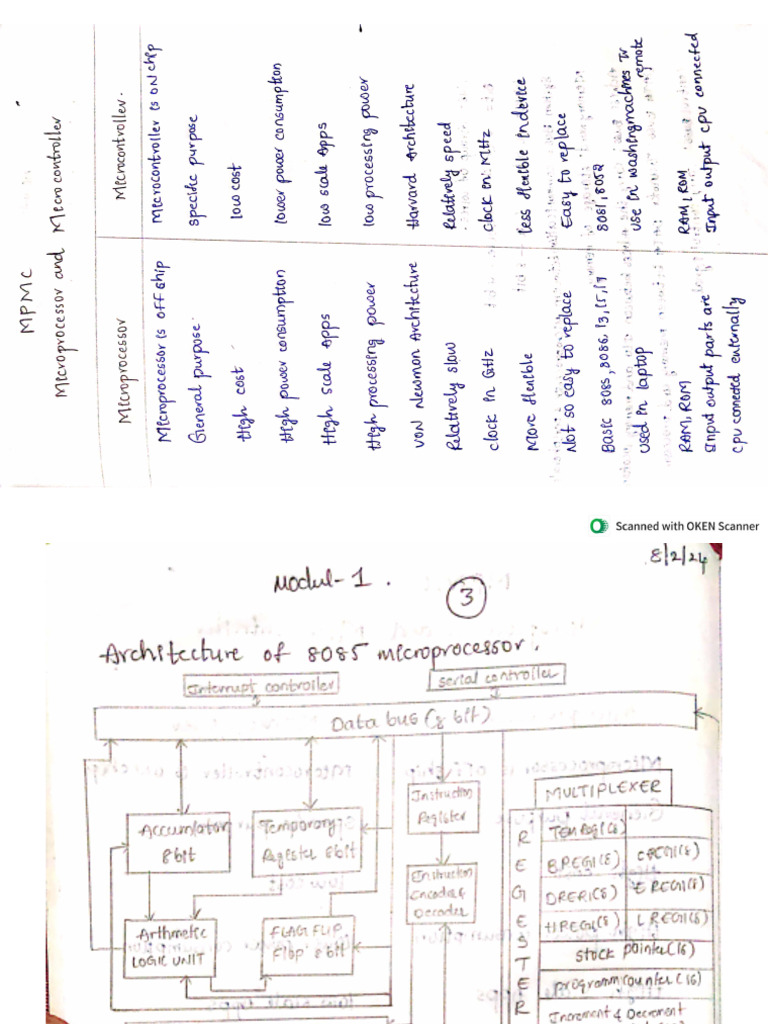 MPMC
Microprocessor and Microcontroller
Microprocessor Microcontroller.
Microprocessor is off ship Microcontroller is on chip
General purpose. specific purpose
High cost. low cost
High power consumption lower power consumption
High scale Apps low scale Apps
High processing power low processing power
VON Newman Architecture Harvard Architecture
Relatively slow Relatively speed
clock in GHz clock in MHz
More flexible less flexible in device
Not so easy to replace Easy to replace
Basic 8085, 8086, i3, i5, i7 8051, 8052
used in laptop use in washing machines TV remote
RAM, ROM RAM, ROM
Input output parts are Input output cpu connected
cpu connected externally
Scanned with OKEN Scanner
8/2/24
Modul-1.
3
Architecture of 8085 microprocessor.
Interrupt controller serial controller
Data bus (8 bit)
MULTIPLEXER
Accumlator
8bit
Temporary
Register 8bit
Instruction
Register
Instruction
Encoder &
Decoder
Arthmetic
LOGIC UNIT
FLAG FLIP
Flop 8bit
REGISTER
TEMP REGI(8)
B REGI(8) C REGI(8)
D RERI(8) E REGI(8)
H REGI(8) L REGI(8)
stock pointer (16)
programm counter (16)
Increment & Decrement